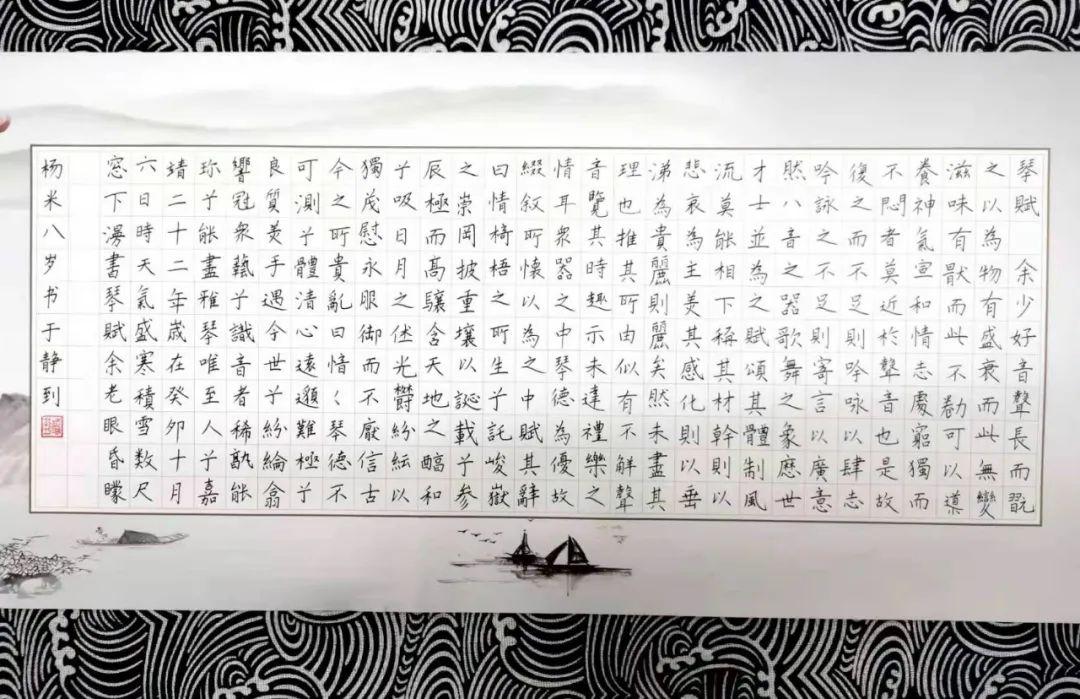 琴賦 余少好音聲長而翫
之以為物有盛衰而此無變
滋味有猒而此不勌可以導
養神氣宣和情志處窮獨而
不悶者莫近於聲音也是故
復之而不足則吟咏以肆志
吟詠之不足則寄言以廣意
然八音之器歌舞之象歷世
才士並為之賦頌其體制風
流莫能相下稱其材幹則以
悲哀為主美其感化則以垂
涕為貴麗則麗矣然未盡其
理也推其所由似有不解聲
音覽其時趣示未達禮樂之
情耳衆器之中琴德為優故
綴叙所懷以為之中賦其辭
曰情椅梧之所生子託峻嶽
之崇岡披重壤以誕載于參
辰極而高驤含天地之醇和
于吸日月之休光欝紛紜以
獨茂慰永服御而不厭信古
今之所貴亂曰愔〱琴德不
可測于體清心遠邈難極于
良質美手遇今世于紛綸翕
響冠衆藝子識音者稀孰能
珎于能盡雅琴唯至人于嘉
靖二十二年歲在癸夘十月
六日時天氣盛寒積雪数尺
窓下漫書琴賦余老眼昏矇
杨米八岁书于静到